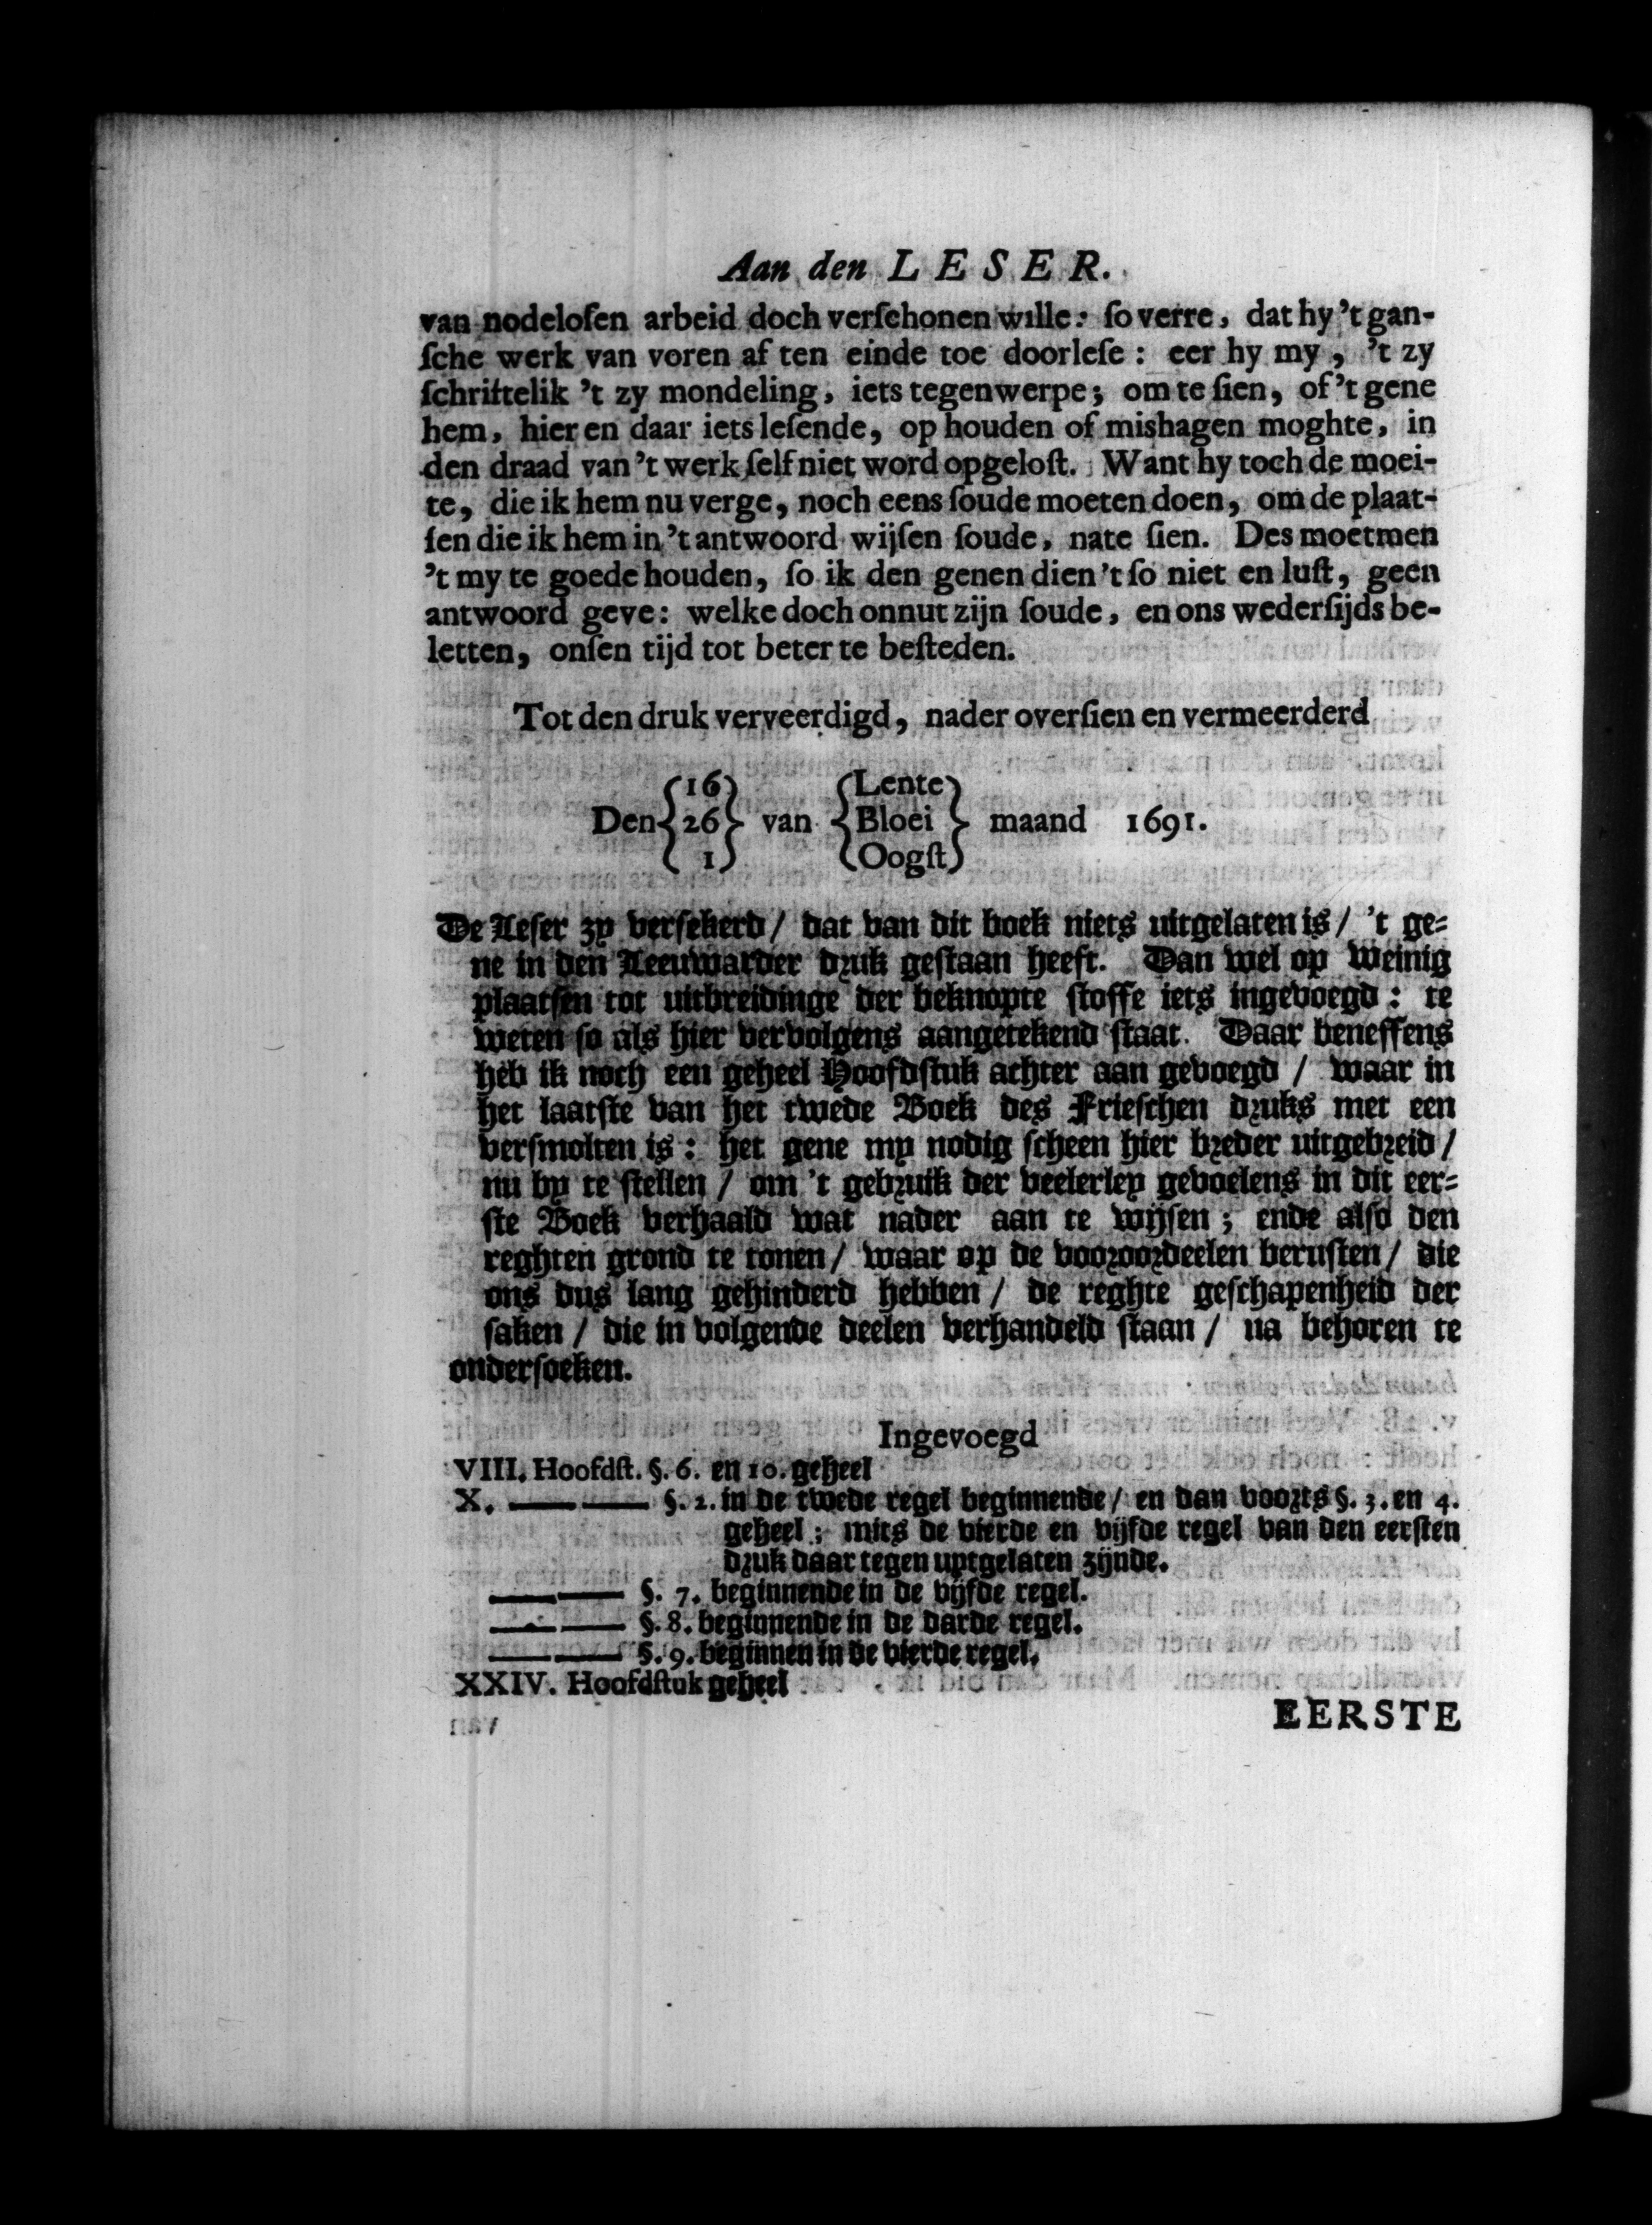 Aan den LESER.
van nodelosen arbeid doch verschonen wille: so verre, dat hy 't gan-
sche werk van voren af ten einde toe doorlese: eer hy my, 't zy
schriftelik 't zy mondeling, iets tegenwerpe; om te sien, of 't gene
hem, hier en daar iets lesende, op houden of mishagen moghte, in
den draad van 't werk self niet word opgelost. Want hy toch de moei-
te, die ik hem nu verge, noch eens soude moeten doen, om de plaat-
sen die ik hem in 't antwoord wijsen soude, na te sien. Des moetmen
't my te goede houden, so ik den genen dien 't so niet en lust, geen
antwoord geve: welke doch onnut zijn soude, en ons wedersijds be-
letten, onsen tijd tot beter te besteden.
Tot den druk verveerdigd, nader oversien en vermeerderd
16 Lente
Den 26 van Bloei maand 1691.
1 Oogst
De Leser zy versekerd / dat van dit boek niets uitgelaten is / 't ge-
ne in den Leeuwarder druk gestaan heeft. Dan wel op weinig
plaatsen tot uitbreidinge der beknopte stoffe iets ingevoegd: te
weten so als hier vervolgens aangetekend staat. Daar beneffens
heb ik noch een geheel Hoofdstuk achter aan gevoegd / waar in
het laatste van het twede Boek des Frieschen druks met een
versmolten is: het gene my nodig scheen hier breder uitgebreid /
nu by te stellen / om 't gebruik der veelerley gevoelens in dit eer-
ste Boek verhaald wat nader aan te wijsen; ende also den
reghten grond te tonen / waar op de vooroordeelen berusten / die
ons dus lang gehinderd hebben / de reghte geschapenheid der
saken / die in volgende deelen verhandeld staan / na behoren te
ondersoeken.
Ingevoegd
VIII. Hoofdst. §. 6. en 10. geheel
X. —— —— §. 2. in de twede regel beginnende / en dan voorts §. 3. en 4.
geheel; mits de vierde en vijfde regel van den eersten
druk daar tegen uytgelaten zijnde.
—— —— §. 7. beginnende in de vijfde regel.
—— —— §. 8. beginnende in de darde regel.
—— —— §. 9. beginnen in de vierde regel.
XXIV. Hoofdstuk geheel
EERSTE